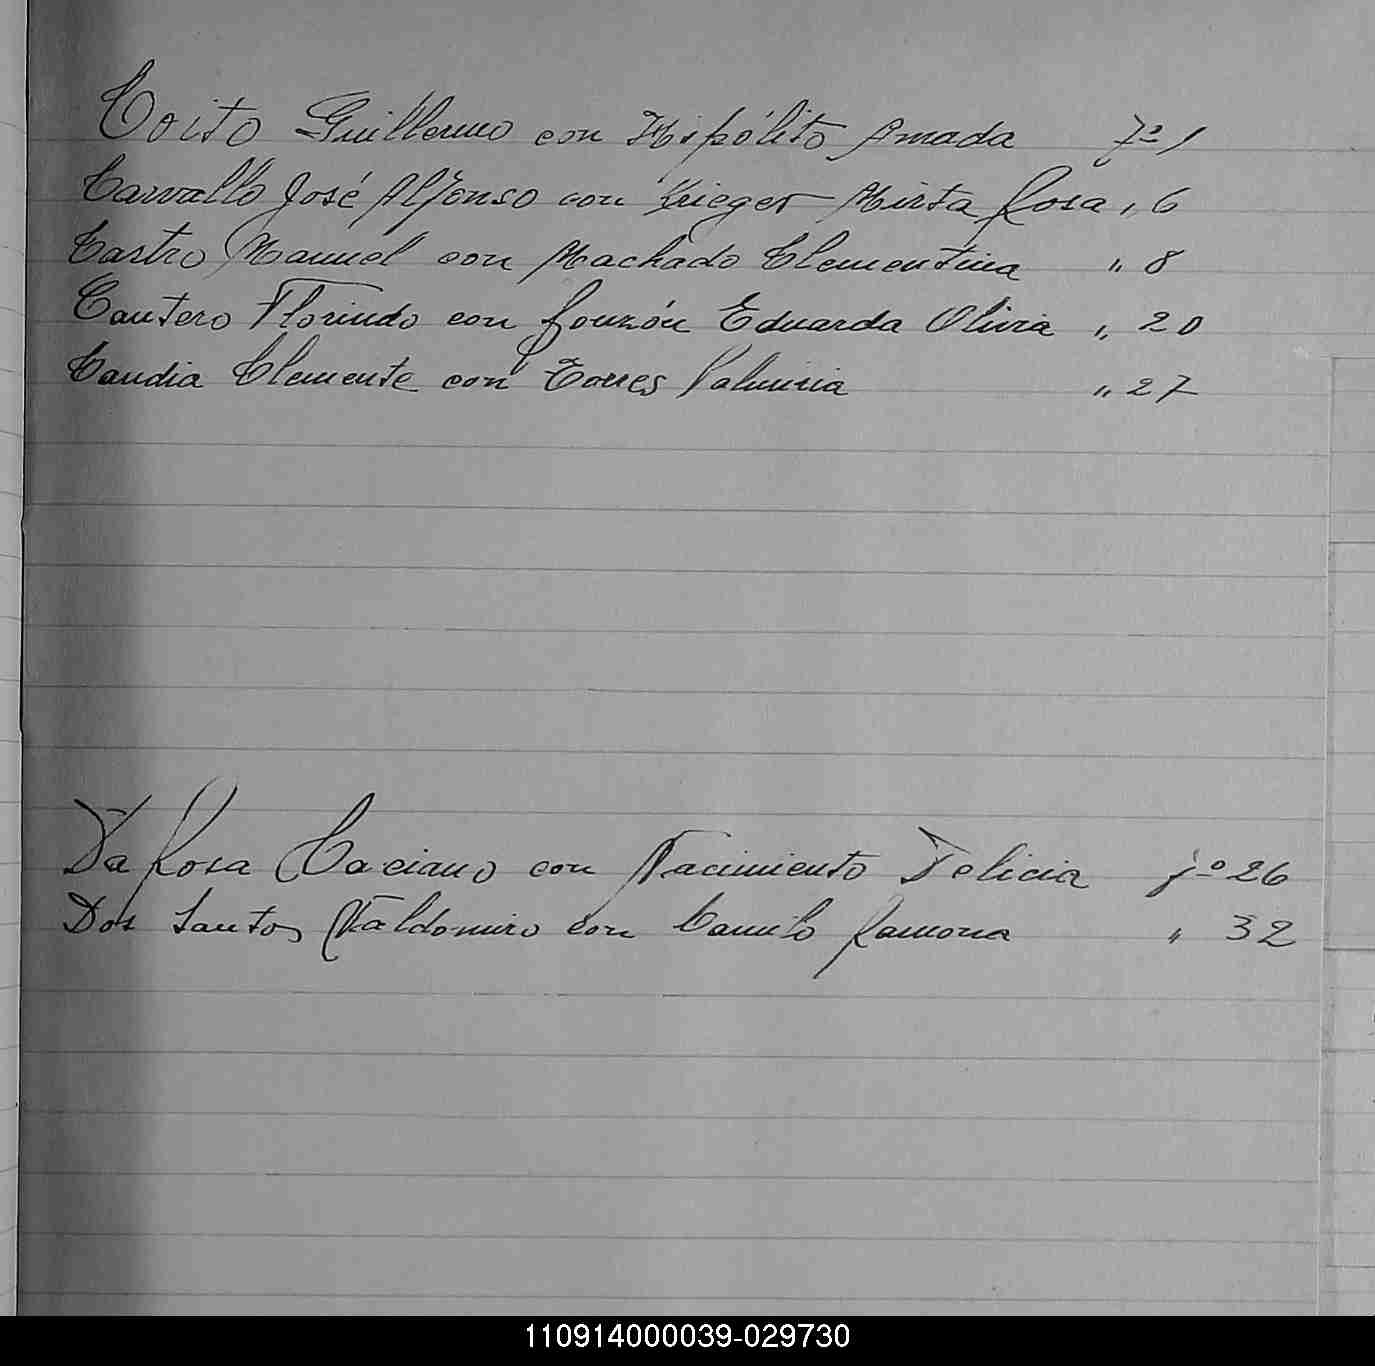 Coito Guillermo con Hipólito Amada fº 1
Carvallo José Alfonso con Krieger Mirta Rosa „ 6
Castro Manuel con Machado Clementina „ 8
Cantero Florindo con Gonzón Eduarda Olivia „ 20
Candia Clemente con Torres Palmiria „ 27
Da Rosa Caciano con Nacimiento Felicia fº 26
Dos Santos Valdomiro con Camilo Ramona „ 32
110914000039-029730